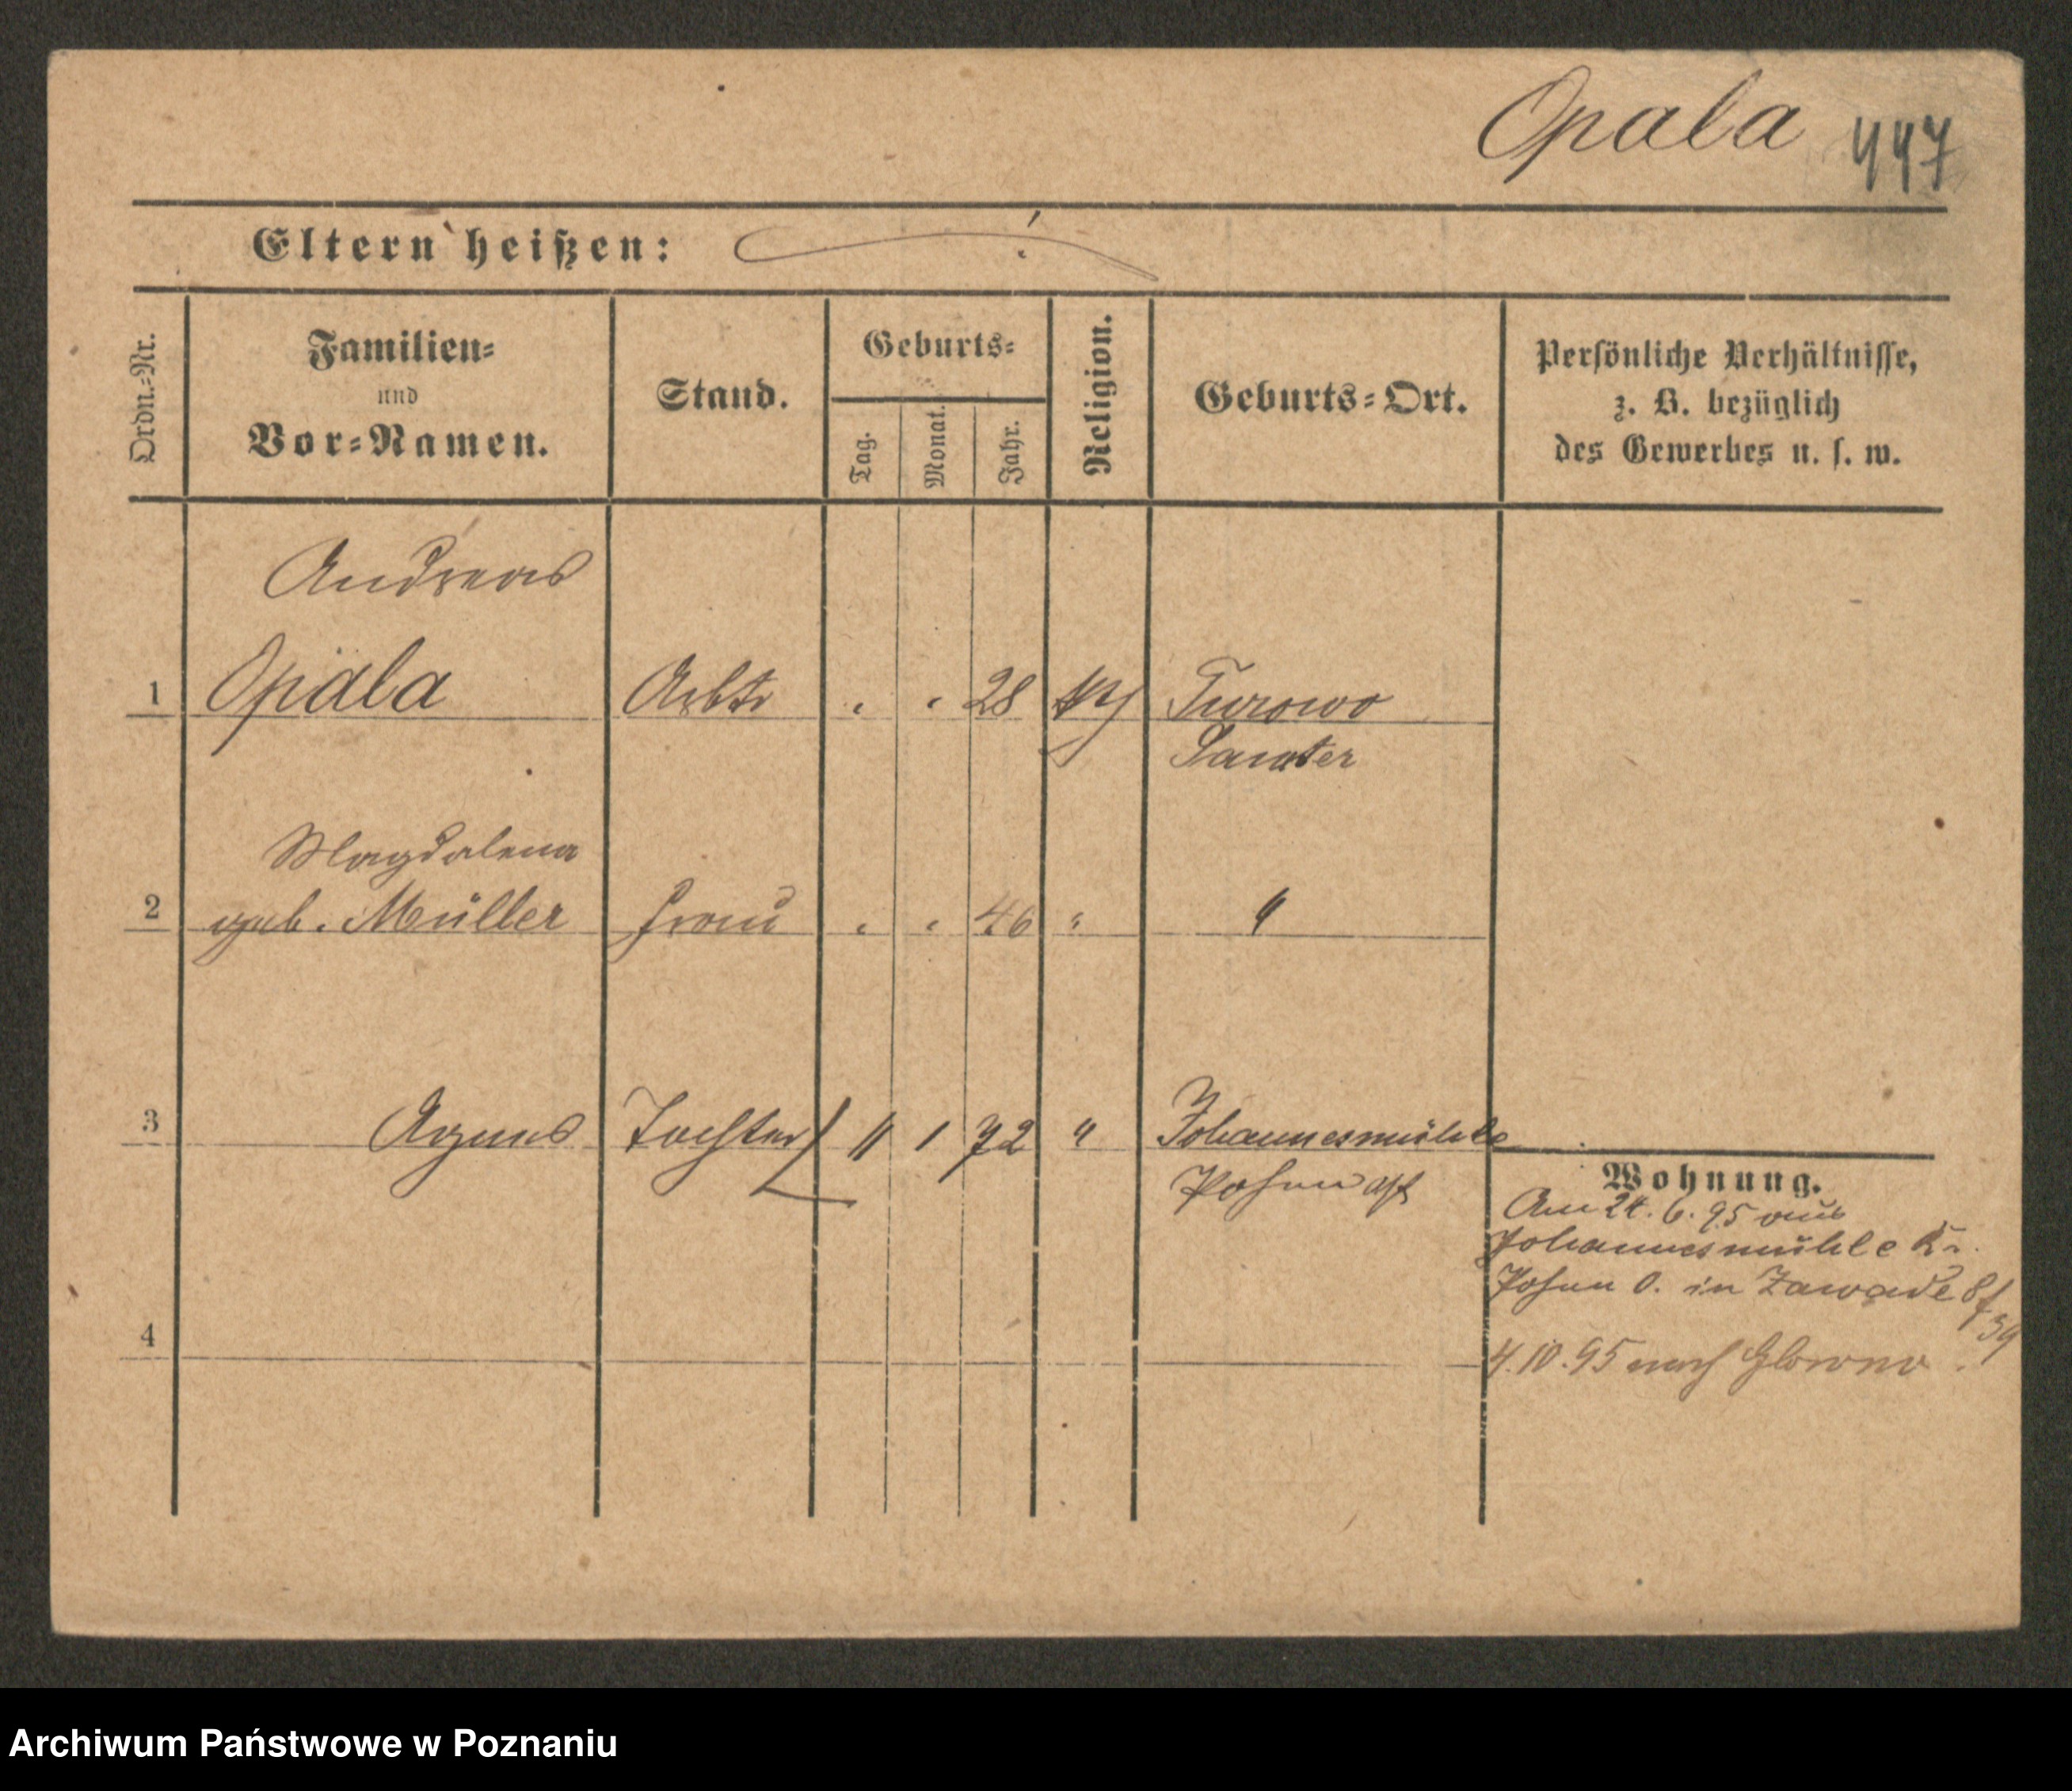 Opala 447
Eltern heißen:
Ordn.-Nr.
Familien-
und
Vor-Namen.
Stand.
Geburts-
Tag.
Monat.
Jahr.
Religion.
Geburts-Ort.
Persönliche Verhältnisse,
z. B. bezüglich
des Gewerbes u. s. w.
Andreas
1 Opala Arbtr " " 28 Turowo
Samter
Magdalena
2 geb. Müller Frau " " 46 " "
3 Agnes Tochter 11 1 72 " Johannesmühle
Posen
Wohnung.
Am 24. 6. 95 aus
Johannesmühle Kr.
Posen O. in Zawade 8/
39
4
4.10.95 nach Glowno.
Archiwum Państwowe w Poznaniu